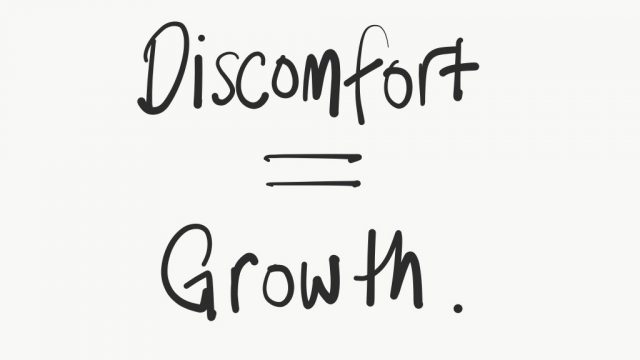 Discomfort
=
Growth.